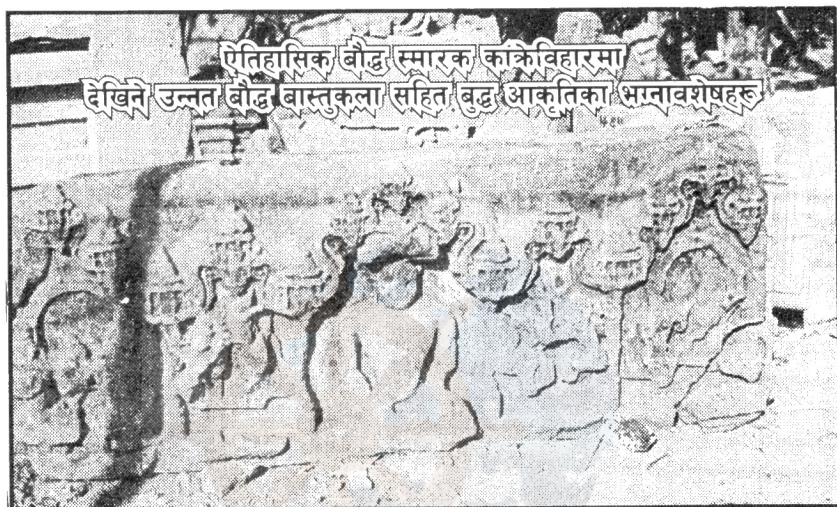 ऐतिहासिक बौद्ध स्मारक काँक्रेविहारमा
देखिने उन्नत बौद्ध बास्तुकला सहित बुद्ध आकृतिका भग्नावशेषहरू